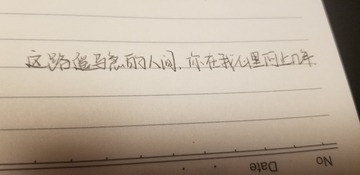 这路遥马急的人间,你在我心里的上几年
No
Date